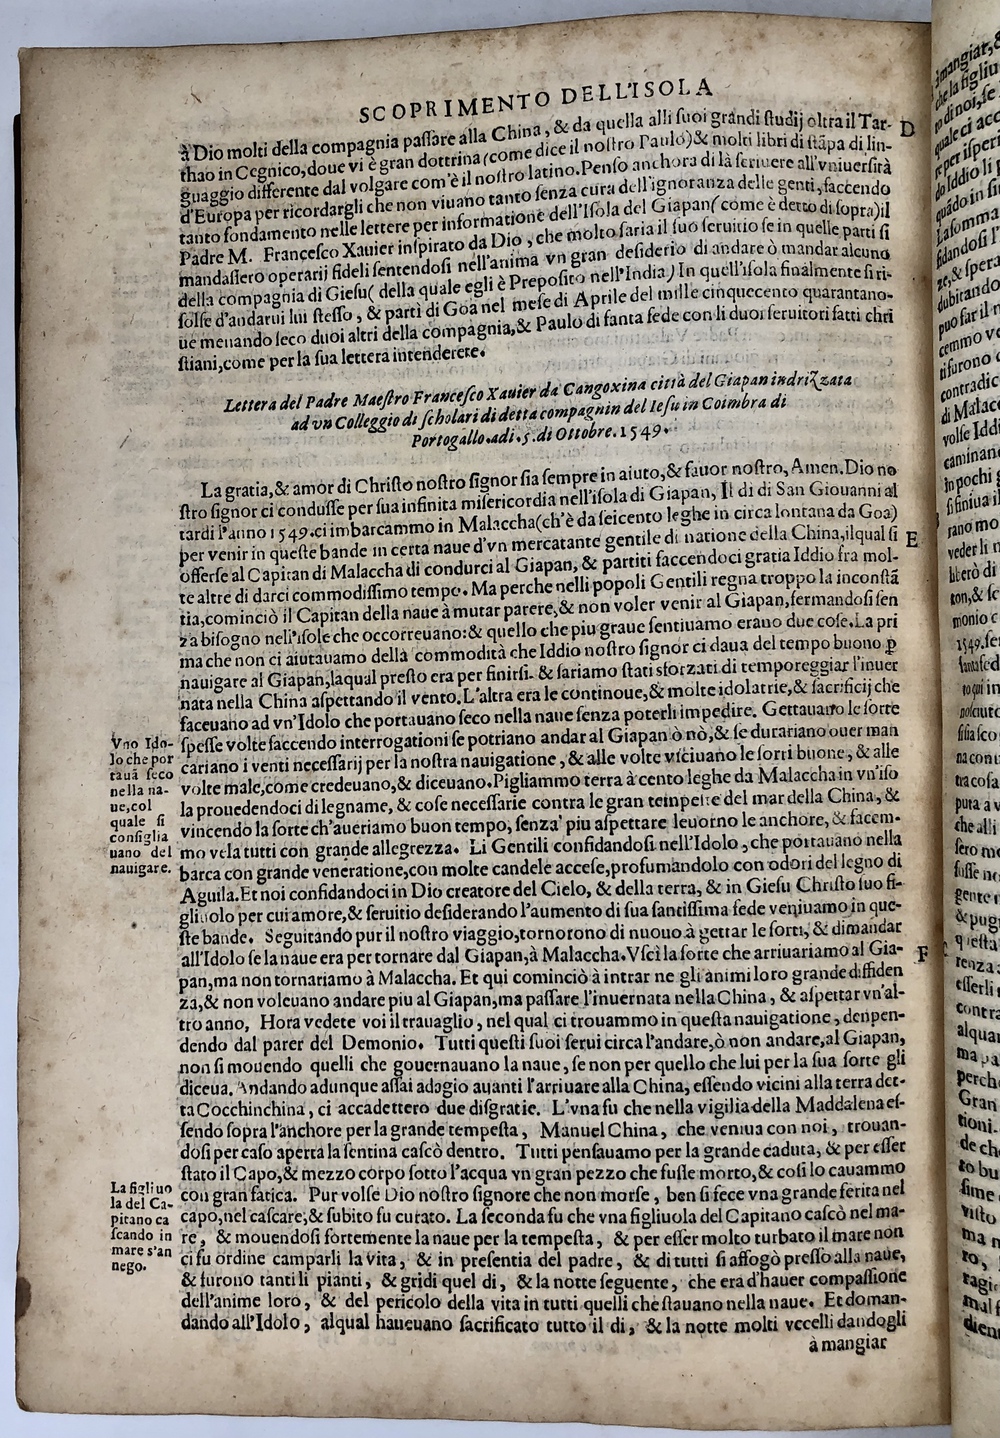 SCOPRIMENTO DELL'ISOLA
à Dio molti della compagnia paſſare alla China, & da quella alli ſuoi grandi ſtudij oltra il Tar- D
thao in Cegnico, doue vi è gran dottrina (come dice il noſtro Paulo) & molti libri di ſtāpa di lin-
guaggio differente dal volgare com'è il noſtro latino. Penſo anchora di là ſcriuere all'vniuerſità
d'Europa per ricordargli che non viuano tanto ſenza cura dell'ignoranza delle genti, faccendo
tanto fondamento nelle lettere per informatione dell'Iſola del Giapan (come è detto di ſopra) il
Padre M. Franceſco Xauier inſpirato da Dio, che molto ſaria il ſuo ſeruitio ſe in quelle parti ſi
mandaſſero operarij fideli ſentendoſi nell'anima vn gran deſiderio di andare ò mandar alcuno
della compagnia di Gieſu (della quale egli è Prepoſito nell'India) In quell'iſola finalmente ſi ri-
ſolſe d'andarui lui ſteſſo, & partì di Goa nel meſe di Aprile del mille cinquecento quarantano-
ue menando ſeco duoi altri della compagnia, & Paulo di ſanta fede con li duoi ſeruitori fatti chri
ſtiani, come per la ſua lettera intenderete.
Lettera del Padre Maeſtro Franceſco Xauier da Cangoxina città del Giapan indrizzata
ad vn Colleggio di ſcholari di detta compagnin del Ieſu in Coimbra di
Portogallo. adi. 5. di Ottobre. 1549.
La gratia, & amor di Chriſto noſtro ſignor ſia ſempre in aiuto, & fauor noſtro, Amen. Dio no
ſtro ſignor ci conduſſe per ſua infinita miſericordia nell'iſola di Giapan, Il di di San Giouanni al
tardi l'anno 1549. ci imbarcammo in Malaccha (ch'è da ſeicento leghe in circa lontana da Goa)
per venir in queſte bande in certa naue d'vn mercatante gentile di natione della China, il qual ſi E
offerſe al Capitan di Malaccha di condurci al Giapan, & partiti faccendoci gratia Iddio fra mol-
te altre di darci commodiſſimo tempo. Ma perche nelli popoli Gentili regna troppo la inconſtā
tia, cominciò il Capitan della naue à mutar parere, & non voler venir al Giapan, fermandoſi ſen
za biſogno nell'iſole che occorreuano: & quello che piu graue ſentiuamo erano due coſe. La pri
ma che non ci aiutauamo della commodità che Iddio noſtro ſignor ci daua del tempo buono ꝑ
nauigare al Giapan, laqual preſto era per finirſi. & ſariamo ſtati sforzati di temporeggiar l'inuer
nata nella China aſpettando il vento. L'altra era le continoue, & molte idolatrie, & ſacrificij che
faceuano ad vn'Idolo che portauano ſeco nella naue ſenza poterli impedire. Gettauano le ſorte
ſpeſſe volte faccendo interrogationi ſe potriano andar al Giapan ò nò, & ſe durariano ouer man
cariano i venti neceſſarij per la noſtra nauigatione, & alle volte vſciuano le ſorti buone, & alle
volte male, come credeuano, & diceuano. Pigliammo terra à cento leghe da Malaccha in vn'iſo
la prouedendoci di legname, & coſe neceſſarie contra le gran tempeste del mar della China, &
vincendo la ſorte ch'aueriamo buon tempo, ſenza' piu aſpettare leuorno le anchore, & facem-
mo vela tutti con grande allegrezza. Li Gentili confidandoſi nell'Idolo, che portauano nella
barca con grande veneratione, con molte candele acceſe, profumandolo con odori del legno di
Aguila. Et noi confidandoci in Dio creatore del Cielo, & della terra, & in Gieſu Chriſto ſuo fi-
gliuolo per cui amore, & ſeruitio deſiderando l'aumento di ſua ſantiſſima fede veniuamo in que-
ſte bande. Seguitando pur il noſtro viaggio, tornorono di nuouo à gettar le ſorti, & dimandar
all'Idolo ſe la naue era per tornare dal Giapan, à Malaccha. Vſcì la ſorte che arriuariamo al Gia- F
pan, ma non tornariamo à Malaccha. Et qui cominciò à intrar ne gli animi loro grande diffiden
za, & non voleuano andare piu al Giapan, ma paſſare l'inuernata nella China, & aſpettar vn'al-
tro anno, Hora vedete voi il trauaglio, nel qual ci trouammo in queſta nauigatione, denpen-
dendo dal parer del Demonio. Tutti queſti ſuoi ſerui circa l'andare, ò non andare, al Giapan,
non ſi mouendo quelli che gouernauano la naue, ſe non per quello che lui per la ſua ſorte gli
diceua. Andando adunque aſſai adagio auanti l'arriuare alla China, eſſendo vicini alla terra det-
ta Cocchinchina, ci accadettero due diſgratie. L'vna fu che nella vigilia della Maddalena eſ-
ſendo ſopra l'anchore per la grande tempeſta, Manuel China, che veniua con noi, trouan-
doſi per caſo aperta la ſentina caſcò dentro. Tutti penſauamo per la grande caduta, & per eſſer
ſtato il Capo, & mezzo corpo ſotto l'acqua vn gran pezzo che fuſſe morto, & coſi lo cauammo
con gran fatica. Pur volſe Dio noſtro ſignore che non morſe, ben ſi fece vna grande ferita nel
capo, nel caſcare, & ſubito fu curato. La ſeconda fu che vna figliuola del Capitano caſcò nel ma-
re, & mouendoſi fortemente la naue per la tempeſta, & per eſſer molto turbato il mare non
ci fu ordine camparli la vita, & in preſentia del padre, & di tutti ſi affogò preſſo alla naue,
& furono tanti li pianti, & gridi quel di, & la notte ſeguente, che era d'hauer compaſſione
dell'anime loro, & del pericolo della vita in tutti quelli che ſtauano nella naue. Et doman-
dando all'Idolo, alqual haueuano ſacrificato tutto il di, & la notte molti vccelli dandogli
à mangiar
Vno Ido-
lo che por
tauā ſeco
nella na-
ue, col
quale ſi
conſiglia
uano del
nauigare.
La figliuo
la del Ca-
pitano ca
ſcando in
mare s'an
nego.